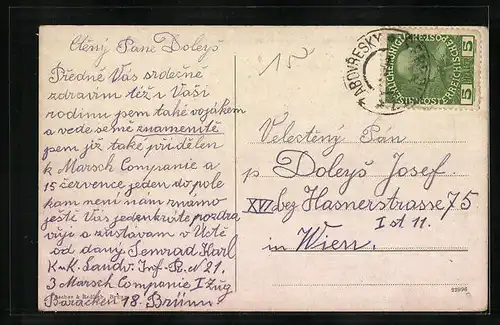 Ctěný Pane Doleyš
Předně Vás srdečně
zdravím též i Vaši
rodinu jsem také vojákem
a vede se mě znamenitě
jsem již také přidělen
k Marsch Companie a
15 července jeden do pole
kam není mám známo
ještě Vás jedenkráte pozdra
vuji a zůstávám v Úctě
od daný. Semrad Karl
K. u. K. Landv. Inf. R. N 21.
3 Marsch Companie I Zug
Baracken 18. Brünn
15
ABOVŘESKY
5
5
Velectěný Pán
p Doleyš Josef.
XVI bez Hasnerstrasse 75
I st 11.
in Wien.